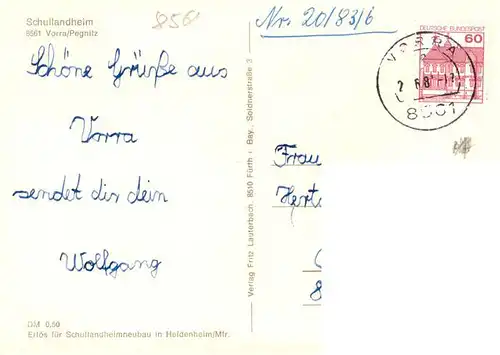 Schullandheim
8561 Vorra/Pegnitz
856
Nr. 20/83/6
DEUTSCHE BUNDESPOST
60
VORRA
8561
Schöne Grüße aus
Vorra
sendet dir dein
Wolfgang
Verlag Fritz Lauterbach, 8510 Fürth · Bay., Soldnerstraße 3
Frau
Hert
8
DM 0,50
Erlös für Schullandheimneubau in Heidenheim/Mfr.